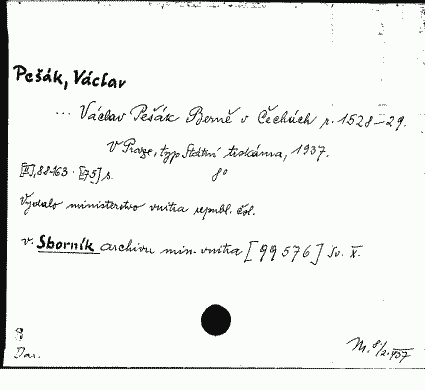 Pešák, Václav
... Václav Pešák Berně v Čechách r. 1528-29.
V Praze, typ. Státní tiskárna, 1937.
[II], 88-163 [75] s. 8°
Vydalo ministerstvo vnitra republ. čsl.
v. Sborník archivu min. vnitra [99576] Sv. X.
Dar.
M. 8/2.